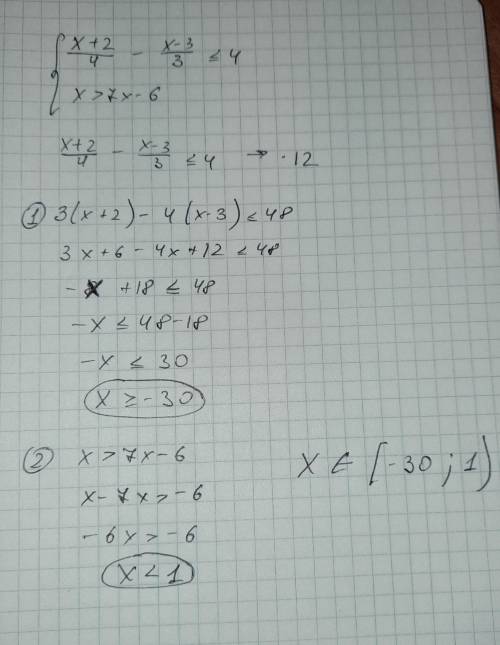 { (x+2)/4 - (x-3)/3 ≤ 4
x > 7x - 6
(x+2)/4 - (x-3)/3 ≤ 4 → ·12
① 3(x+2) - 4(x-3) ≤ 48
3x + 6 - 4x + 12 ≤ 48
-x + 18 ≤ 48
-x ≤ 48 - 18
-x ≤ 30
x ≥ -30
② x > 7x - 6
x - 7x > -6
-6x > -6
x < 1
x ∈ [-30 ; 1)